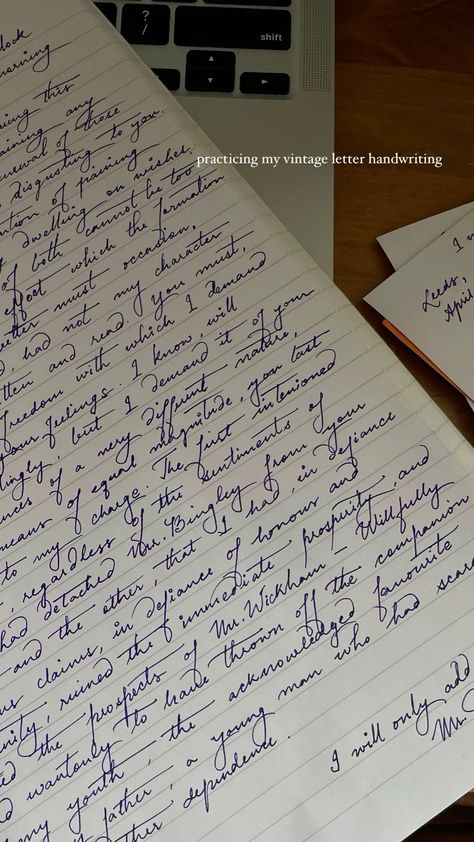 ?
/
shift
practicing my vintage letter handwriting
lock
morning
this
taining any
newal of those
disgusting to you.
ntion of paining
dwelling on wishes,
of both cannot be too
effect which the formation
letter must occasion,
had not my character
tten and read. You must,
freedom with which I demand
your feelings. I know, will
lingly, but I demand it of your
nces of a very different nature,
means of equal magnitude, you last
to my charge. The first intenioned
, regardless of the sentiments of
had detached Mr. Bingley from your
and the other, that I had, in defiance
us claims, in defiance of honour and
nity, ruined the immediate prosperity, and
ted the prospects of Mr. Wickham - Willfully
d wantonly to have thrown off the companion
my youth, the acknowledged favourite
father, a young man who had scarc
other dependence.
I will only add
Leeds,
April